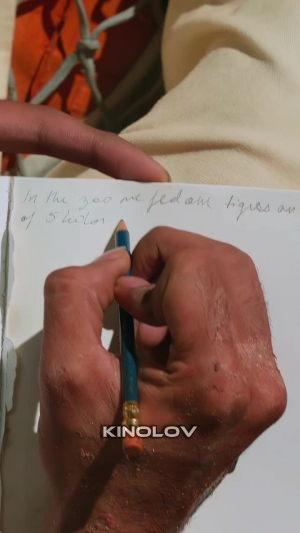 In the zoo we fed our tigers on
of
KINOLOV